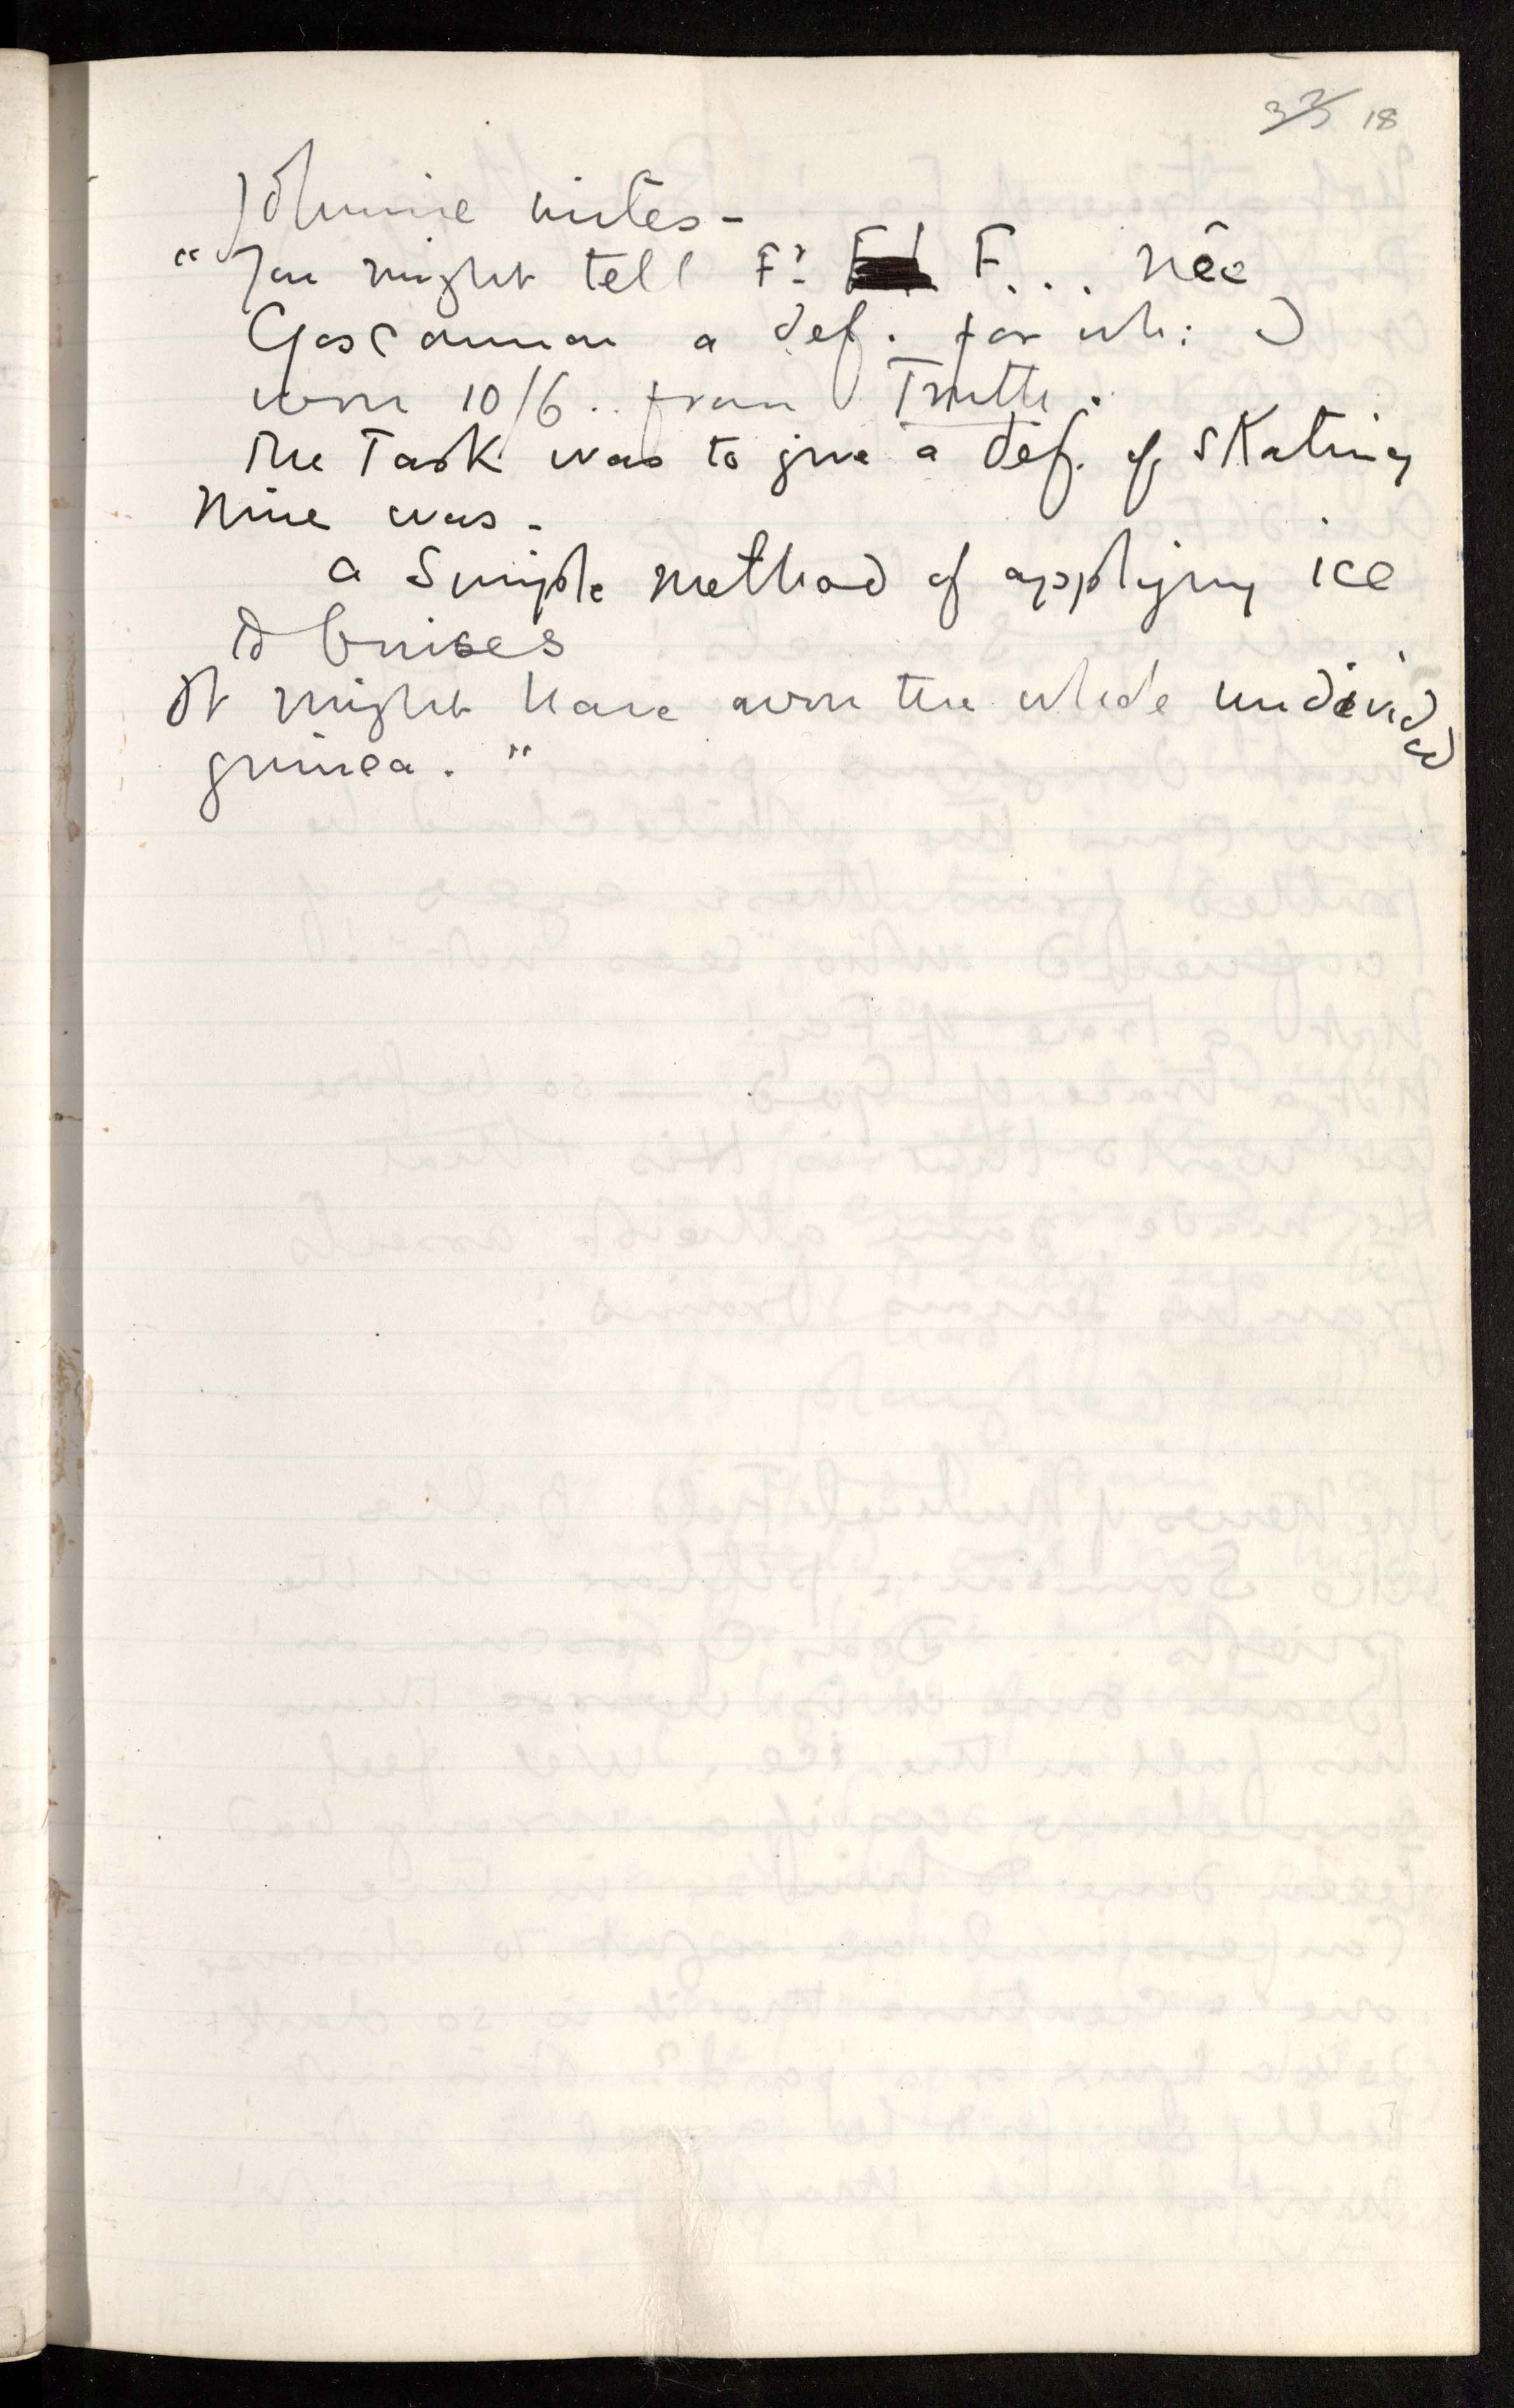 33 18
Johnnie writes -
"You might tell Fr F... née
Goscannon a def. for wh: I
won 10/6.. from Truth.
The Task was to give a def. of skating
Mine was -
a simple method of applying ice
to bruises
It might have won the whole undivided
guinea."